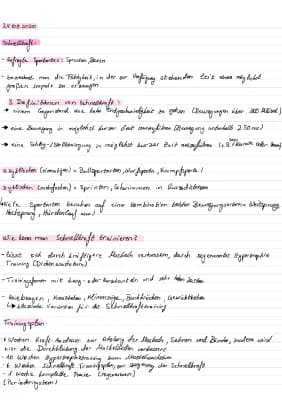 Schnellkraft:
- Gefragte Sportarten: Sprinten, Boxen
- bezeichnet man die Fähigkeit, in der zur Verfügung stehenden Zeit einen möglichst
großen Impuls zu erzeugen
3 Definitionen von Schnellkraft:
→ einem Gegenstand eine hohe Endgeschwindigkeit zu geben (Bewegungen über
→ eine Bewegung in möglichst kurzer Zeit auszuführen (Bewegung unterhalb 250ms)
→ eine Schlag-/Stoßbewegung in möglichst kurzer Zeit auszuführen
azyklischen (einmaligen) = Ballsportarten, Wurfsports, Kampfsports)
zyklischen (andauernden) = Sprinter, Schwimmen in Kurzdistanzen
Viele Sportarten beruhen auf eine Kombination beider Bewegungsarten = Weitsprung,
Hochsprung, Hürdenlauf usw.)
Wie kann man Schnellkraft trainieren?
- lässt sich durch kräftigere Muskeln verbessern, durch sogenanntes Hypertrophie
Training (Dickenwachstum)
- Trainingsformen mit und sehr hohen Lasten
- Liegestützen, Kniebeugen, Klimmzüge, Bankdrücken, Gewichtheben
↳ klassische Varianten für das Schnellkrafttraining
Trainingsplan:
- 6 Wochen Kraft-Ausdauer zur Stärkung der Muskeln, Sehnen und Bänder, zudem wird
hier die Durchblutung der Muskelzellen verbessert
- 10 Wochen Hypertrophietraining zum Muskelwachstum
- 6 Wochen Schnellkraft Trainingsplan, zur Steigerung der Schnellkraft
- 1 Woche komplette Pause (regenerieren)
(Periodensystem)